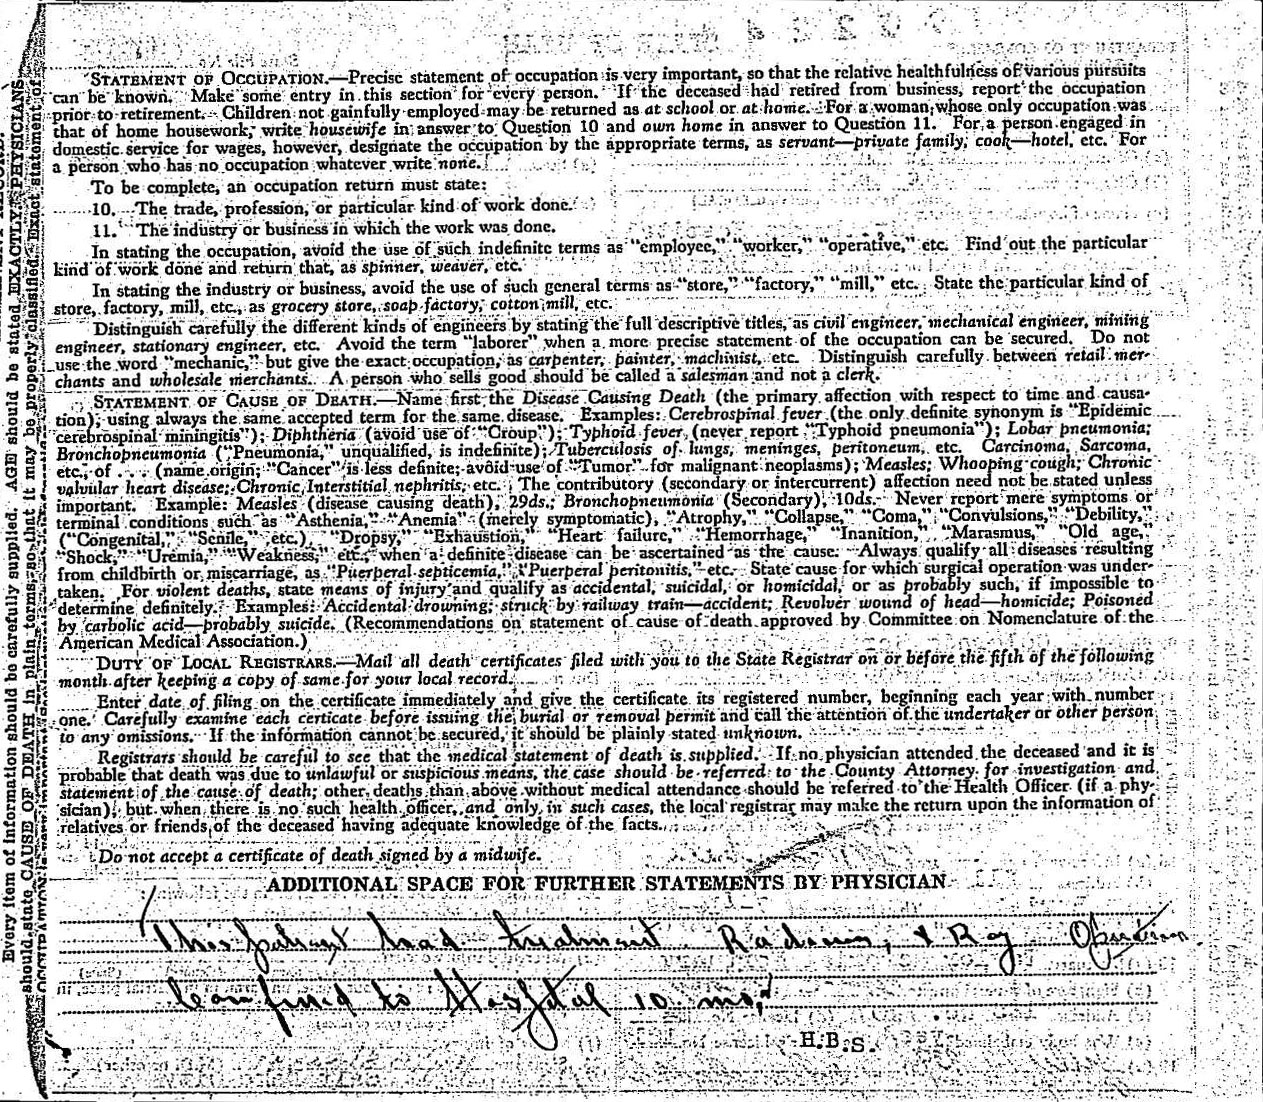 Every item of information should be carefully supplied. AGE should be stated EXACTLY. PHYSICIANS
should state CAUSE OF DEATH in plain terms, so that it may be properly classified. Exact statement of
STATEMENT OF OCCUPATION.—Precise statement of occupation is very important, so that the relative healthfulness of various pursuits
can be known. Make some entry in this section for every person. If the deceased had retired from business, report the occupation
prior to retirement. Children not gainfully employed may be returned as at school or at home. For a woman whose only occupation was
that of home housework, write housewife in answer to Question 10 and own home in answer to Question 11. For a person engaged in
domestic service for wages, however, designate the occupation by the appropriate terms, as servant—private family, cook—hotel, etc. For
a person who has no occupation whatever write none.
To be complete, an occupation return must state:
10. The trade, profession, or particular kind of work done.
11. The industry or business in which the work was done.
In stating the occupation, avoid the use of such indefinite terms as "employee," "worker," "operative," etc. Find out the particular
kind of work done and return that, as spinner, weaver, etc.
In stating the industry or business, avoid the use of such general terms as "store," "factory," "mill," etc. State the particular kind of
store, factory, mill, etc., as grocery store, soap factory, cotton mill, etc.
Distinguish carefully the different kinds of engineers by stating the full descriptive titles, as civil engineer, mechanical engineer, mining
engineer, stationary engineer, etc. Avoid the term "laborer" when a more precise statement of the occupation can be secured. Do not
use the word "mechanic," but give the exact occupation, as carpenter, painter, machinist, etc. Distinguish carefully between retail mer-
chants and wholesale merchants. A person who sells good should be called a salesman and not a clerk.
STATEMENT OF CAUSE OF DEATH.—Name first the Disease Causing Death (the primary affection with respect to time and causa-
tion), using always the same accepted term for the same disease. Examples: Cerebrospinal fever (the only definite synonym is "Epidemic
cerebrospinal miningitis"); Diphtheria (avoid use of "Croup"); Typhoid fever (never report "Typhoid pneumonia"); Lobar pneumonia;
Bronchopneumonia ("Pneumonia," unqualified, is indefinite); Tuberculosis of lungs, meninges, peritoneum, etc. Carcinoma, Sarcoma,
etc., of . . . (name origin; "Cancer" is less definite; avoid use of "Tumor" for malignant neoplasms); Measles; Whooping cough; Chronic
valvular heart disease; Chronic Interstitial nephritis, etc. The contributory (secondary or intercurrent) affection need not be stated unless
important. Example: Measles (disease causing death), 29ds.; Bronchopneumonia (Secondary), 10ds. Never report mere symptoms or
terminal conditions such as "Asthenia," "Anemia" (merely symptomatic), "Atrophy," "Collapse," "Coma," "Convulsions," "Debility,"
("Congenital," "Senile," etc.), "Dropsy," "Exhaustion," "Heart failure," "Hemorrhage," "Inanition," "Marasmus," "Old age,"
"Shock," "Uremia," "Weakness," etc., when a definite disease can be ascertained as the cause. Always qualify all diseases resulting
from childbirth or miscarriage, as "Puerperal septicemia," "Puerperal peritonitis," etc. State cause for which surgical operation was under-
taken. For violent deaths, state means of injury and qualify as accidental, suicidal, or homicidal, or as probably such, if impossible to
determine definitely. Examples: Accidental drowning; struck by railway train—accident; Revolver wound of head—homicide; Poisoned
by carbolic acid—probably suicide. (Recommendations on statement of cause of death approved by Committee on Nomenclature of the
American Medical Association.)
DUTY OF LOCAL REGISTRARS.—Mail all death certificates filed with you to the State Registrar on or before the fifth of the following
month after keeping a copy of same for your local record.
Enter date of filing on the certificate immediately and give the certificate its registered number, beginning each year with number
one. Carefully examine each certicate before issuing the burial or removal permit and call the attention of the undertaker or other person
to any omissions. If the information cannot be secured, it should be plainly stated unknown.
Registrars should be careful to see that the medical statement of death is supplied. If no physician attended the deceased and it is
probable that death was due to unlawful or suspicious means, the case should be referred to the County Attorney for investigation and
statement of the cause of death; other deaths than above without medical attendance should be referred to the Health Officer (if a phy-
sician), but when there is no such health officer, and only in such cases, the local registrar may make the return upon the information of
relatives or friends of the deceased having adequate knowledge of the facts.
Do not accept a certificate of death signed by a midwife.
ADDITIONAL SPACE FOR FURTHER STATEMENTS BY PHYSICIAN
This patient had treatment Radium, & Ray
Confined to Hospital 10 mo,
H.B.S.